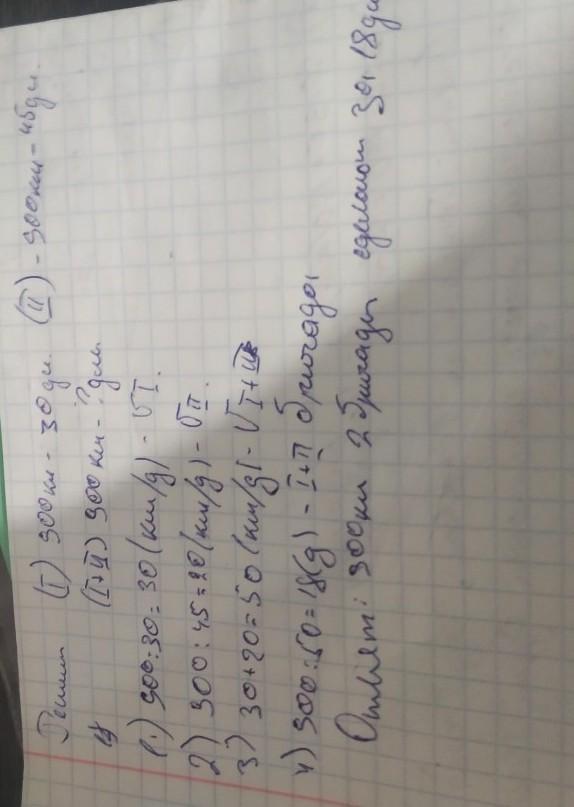 Решит (I) 900км - 30 дн. (II) - 900км - 45 дн.
(I+II) 900км - ? дн.
1.) 900:30=30 (км/д) - VI.
2) 900:45=20 (км/д) - VII.
3) 30+20=50 (км/д) - VI+II
4) 900:50=18(д) - I+II бригады
Ответ: 900км 2 бригады сделают за 18 дн